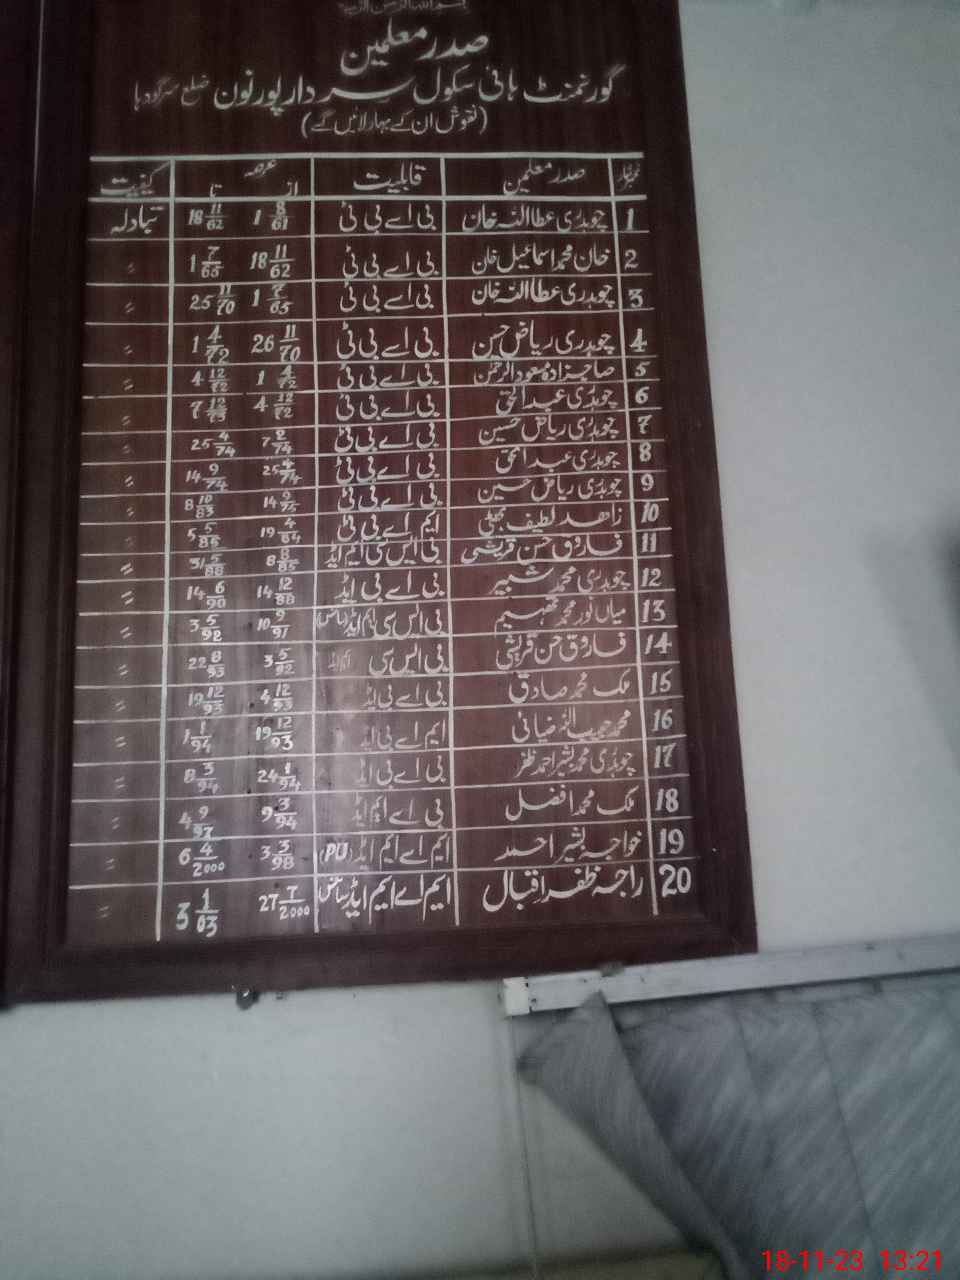 بسم اللہ الرحمن الرحیم
صدر معلمین
گورنمنٹ ہائی سکول سردار پور نون ضلع سرگودہا
(نقوش ان کے بہار لائیں گے)
نمبر شمار صدر معلمین قابلیت عرصہ از تا کیفیت
1 چوہدری عطااللہ خان بی اے بی ٹی 1 8/61 18 11/62 تبادلہ
2 خان محمد اسماعیل خان بی اے بی ٹی 18 11/62 1 7/65 〃
3 چوہدری عطااللہ خان بی اے بی ٹی 1 7/65 25 11/70 〃
4 چوہدری ریاض حسن بی اے بی ٹی 26 11/70 1 4/72 〃
5 صاحبزادہ مسعود الرحمٰن بی اے بی ٹی 1 4/72 4 12/72 〃
6 چوہدری عبدالحق بی اے بی ٹی 4 12/72 7 12/73 〃
7 چوہدری ریاض حسین بی اے بی ٹی 7 2/74 25 4/74 〃
8 چوہدری عبدالحق بی اے بی ٹی 25 4/74 14 9/74 〃
9 چوہدری ریاض حسین بی اے بی ٹی 14 9/75 8 10/83 〃
10 زاھد لطیف بھٹی ایم اے بی ٹی 19 4/84 5 5/85 〃
11 فاروق حسن قریشی بی ایس سی ایم ایڈ 8 8/85 31 5/88 〃
12 چوہدری محمد شبیر بی اے بی ایڈ 14 12/88 14 6/90 〃
13 میاں نور محمد فہیم بی ایس سی ایم ایڈ (سائنس) 10 9/91 3 5/92 〃
14 فاروق حسن قریشی بی ایس سی ایم ایڈ 3 5/92 22 8/93 〃
15 ملک محمد صادق بی اے بی ایڈ 4 12/93 19 12/93 〃
16 محمد حبیب اللہ ضیائی ایم اے بی ایڈ 19 12/93 1 1/94 〃
17 چوہدری محمد بشیر احمد ظفر بی اے بی ایڈ 24 1/94 8 3/94 〃
18 ملک محمد افضل بی اے ایم ایڈ 9 3/94 4 9/97 〃
19 خواجہ بشیر احمد ایم اے ایم ایڈ (PU) 3 3/98 6 4/2000 〃
20 راجہ ظفر اقبال ایم اے ایم ایڈ سائنس 27 7/2000 3 1/03 〃
18-11-23 13:21